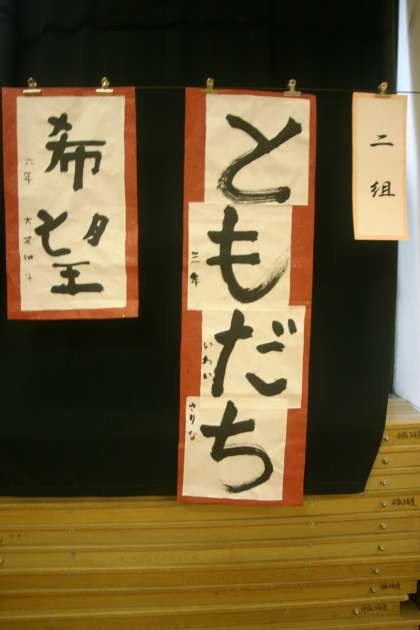 二組
ともだち
三年
いわい
さりな
希望
六年